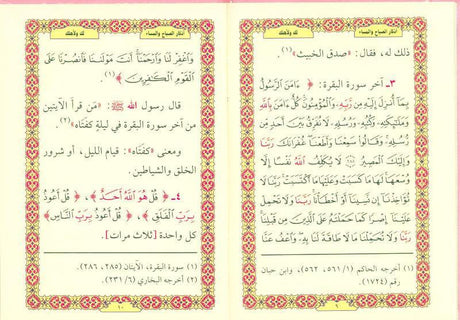 أذكار الصباح والمساء
لك ولأهلك
ذلك له، فقال: «صدق الخبيث»(١).
٣- آخر سورة البقرة: ﴿ ءَامَنَ ٱلرَّسُولُ
بِمَآ أُنزِلَ إِلَيْهِ مِن رَّبِّهِۦ وَٱلْمُؤْمِنُونَ كُلٌّ ءَامَنَ بِٱللَّهِ
وَمَلَٰٓئِكَتِهِۦ وَكُتُبِهِۦ وَرُسُلِهِۦ لَا نُفَرِّقُ بَيْنَ أَحَدٍ
مِّن رُّسُلِهِۦ وَقَالُوا۟ سَمِعْنَا وَأَطَعْنَا غُفْرَانَكَ رَبَّنَا
وَإِلَيْكَ ٱلْمَصِيرُ ﴿٢٨٥﴾ لَا يُكَلِّفُ ٱللَّهُ نَفْسًا إِلَّا
وُسْعَهَا لَهَا مَا كَسَبَتْ وَعَلَيْهَا مَا ٱكْتَسَبَتْ رَبَّنَا لَا
تُؤَاخِذْنَآ إِن نَّسِينَآ أَوْ أَخْطَأْنَا رَبَّنَا وَلَا تَحْمِلْ
عَلَيْنَآ إِصْرًا كَمَا حَمَلْتَهُۥ عَلَى ٱلَّذِينَ مِن قَبْلِنَا
رَبَّنَا وَلَا تُحَمِّلْنَا مَا لَا طَاقَةَ لَنَا بِهِۦ وَٱعْفُ عَنَّا
(١) أخرجه الحاكم (١/ ٥٦١، ٥٦٢)، وابن حبان
رقم (١٧٢٤)
أذكار الصباح والمساء
لك ولأهلك
وَٱغْفِرْ لَنَا وَٱرْحَمْنَآ أَنتَ مَوْلَىٰنَا فَٱنصُرْنَا عَلَى
ٱلْقَوْمِ ٱلْكَٰفِرِينَ ﴾(١)
قال رسول الله ﷺ: «مَن قرأ الآيتين
من آخر سورة البقرة في ليلةٍ كَفَتَاه»(٢).
ومعنى «كفتاه»: قيام الليل، أو شرور
الخلق والشياطين.
٤- ﴿ قُلْ هُوَ ٱللَّهُ أَحَدٌ ﴾، ﴿ قُلْ أَعُوذُ
بِرَبِّ ٱلْفَلَقِ ﴾، ﴿ قُلْ أَعُوذُ بِرَبِّ ٱلنَّاسِ ﴾
كل واحدة [ثلاث مرات].
(١) سورة البقرة، الآيتان (٢٨٥، ٢٨٦).
(٢) أخرجه البخاري (٦/ ٢٣١)
١٠